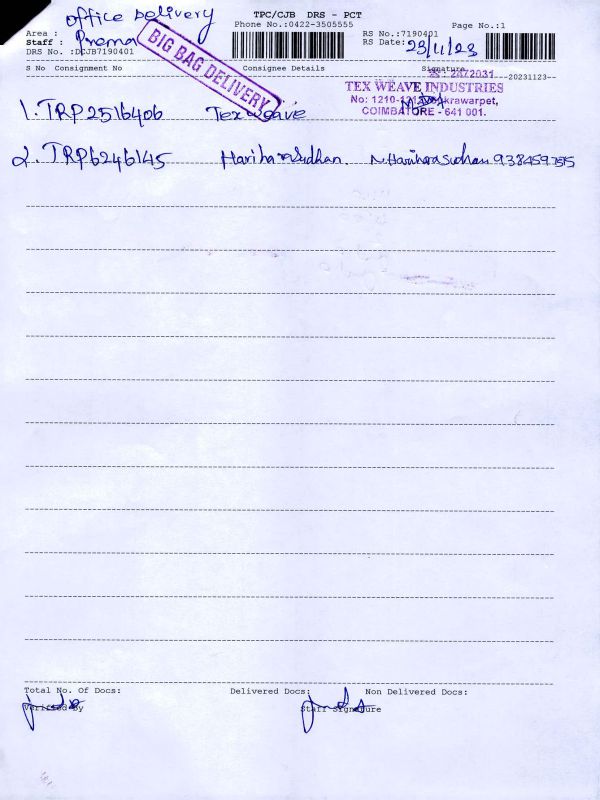 office Delivery
TPC/CJB DRS - PCT
Phone No.:0422-3505555
Page No.:1
Area :
RS No.:7190401
Staff : Prema
RS Date: 23/11/23
DRS No. :DCJB7190401
BIG BAG DELIVERY
S No Consignment No Consignee Details Signature
2472031
--20231123--
TEX WEAVE INDUSTRIES
No: 1210-1212, krawarpet,
COIMBATORE - 641 001.
1. TRP2516406 Tex weave
2. TRP6246145 Hariharasudhan. N. Hariharasudhan 9384597515
Total No. Of Docs: Delivered Docs: Non Delivered Docs:
Verified By Staff Signature